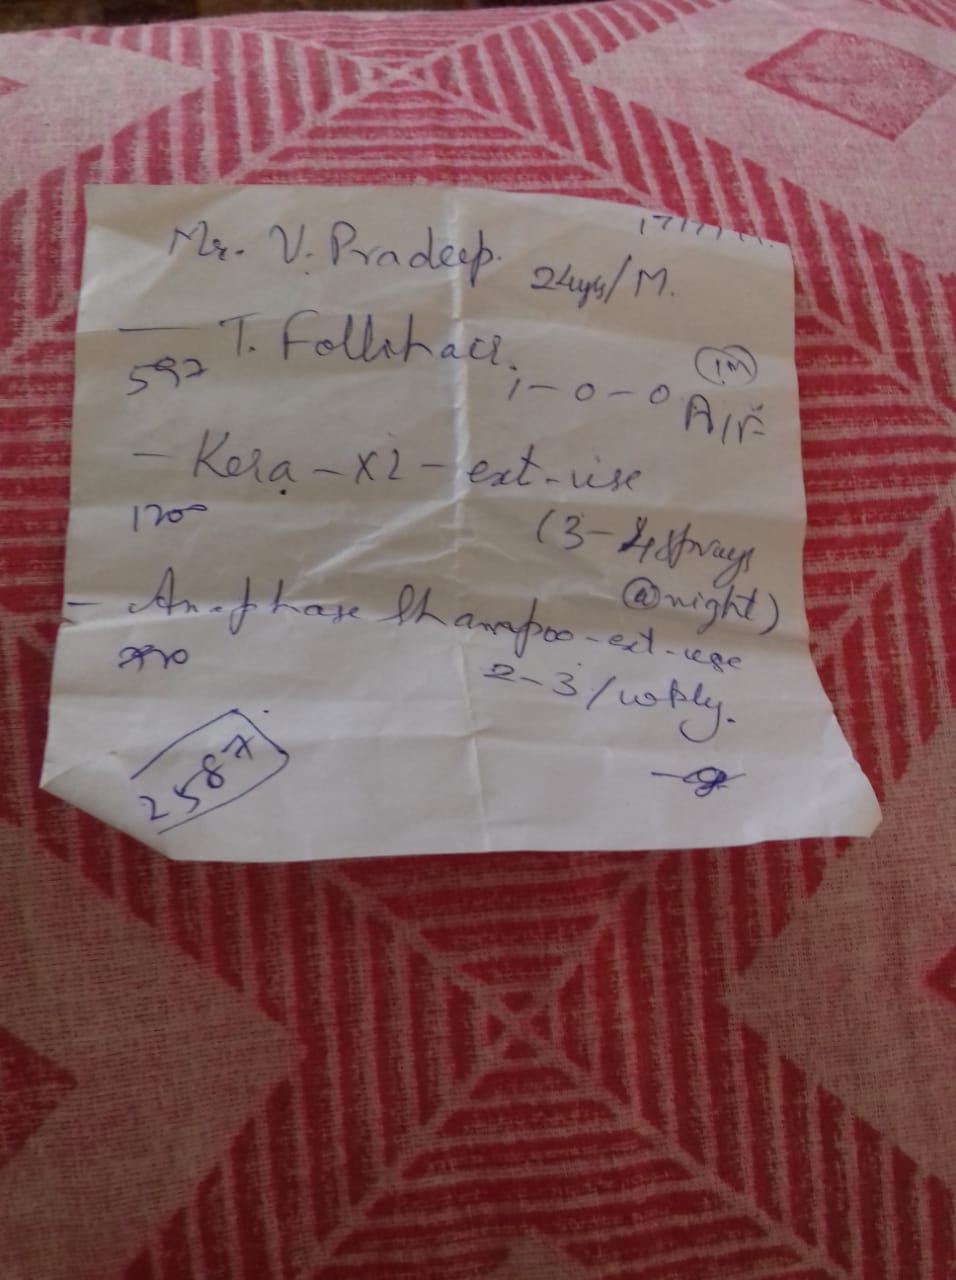 Mr. V. Pradeep.
24yrs/M.
- T. Follihair.
597
1-0-0 1m
A/F
- Kera-XL-ext-use
1200
(3-4 sprays
@night)
- Anaphase Shampoo-ext-use
2-3/wkly.
2587